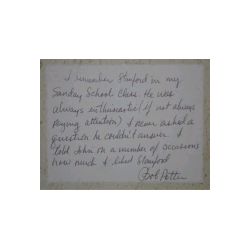 I remember Stanford in my
Sunday School Class. He was
always enthusiastic (if not always
paying attention) I never asked a
question he couldn't answer. I
told John on a number of occasions
how much I liked Stanford
Bob Potter